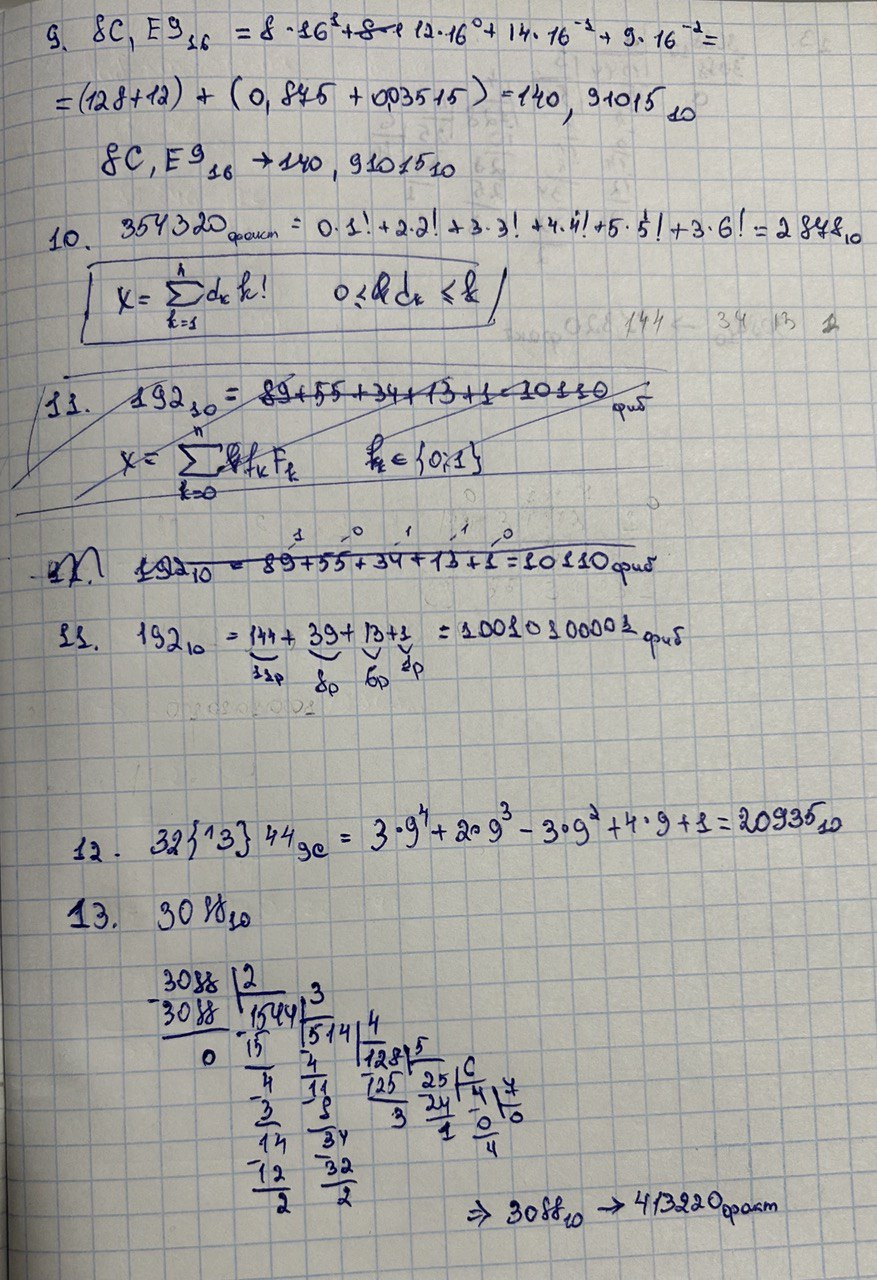 9. 8C, E9₁₆ = 8·16¹ + 12·16⁰ + 14·16⁻¹ + 9·16⁻² =
= (128+12) + (0,875 + 0,03515) = 140, 91015₁₀
8C, E9₁₆ → 140, 91015₁₀
10. 354320факт = 0·1! + 2·2! + 3·3! + 4·4! + 5·5! + 3·6! = 2878₁₀
x = ∑ dₖ k! 0 ≤ dₖ ≤ k
n
k=1
144 → 34 13 1
11. 192₁₀ = 89+55+34+13+1=10110фиб
x = ∑ fₖFₖ fₖ ∈ {0;1}
n
k=0
1 0 1 1 0
11. 192₁₀ = 89+55+34+13+1=10110фиб
11. 192₁₀ = 144 + 39 + 13 + 1 = 10010100001фиб
11р 8р 6р 1р
12. 32{^3}44₉c = 3·9⁴ + 2·9³ - 3·9² + 4·9 + 1 = 20935₁₀
13. 3088₁₀
3088 2
-3088 1544 3
0 -15 514 4
4 -4 128 5
-3 11 -125 25 6
14 -8 3 -24 4 7
-12 34 1 -0 0
2 -32 4
2
⇒ 3088₁₀ → 413220факт